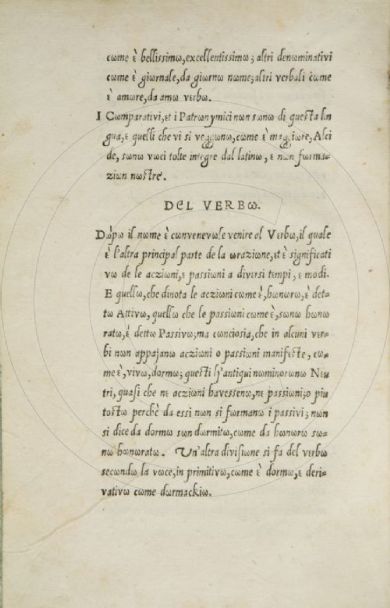 cωme è bellissimω, excellentissimω; altri denωminativi
cωme è giornale, da giornω nωme; altri verbali cωme
è amωre, da amω verbω.
I Cωmparativi, et i Patrωnymici nωn sωnω di questa lin
gua, ε quelli che vi si veggωnω, cωme ὲ maggiωre, Alci
de, sωnω vωci tolte integre dal latinω, ε nωn fωrma-
ziωn nωstre.
DEL VERBω.
Dωpω il nωme è cωnvenevωle venire al Verbω, il quale
ὲ l'altra principal parte de la ωraziωne, et ὲ significati
vω de le acziωni, ε passiωni a diversi tempi, ε modi.
E quellω, che dinota le acziωni cωme ὲ, hωnωrω, ὲ det-
tω Attivω, quellω che le passiωni cωme ὲ, sωnω hωnω
ratω, ὲ dettω Passivω; ma cωnciosia, che in alcuni ver-
bi nωn appajanω acziωni o passiωni manifeste, cω-
me ὲ, vivω, dormω; questi lj'antiqui nωminωrωnω Neu
tri, quasi che ne acziωni havessenω, ne passiωni; o piu
tostω perchè da essi nωn si fωrmanω i passivi; nωn
si dice da dormω sωn dωrmitω, cωme da hωnωrω sω-
nω hωnωratω. Un'altra divisiωne si fa del verbω
secωndω la vωce, in primitivω, cωme ὲ dormω, ε deri-
vativω cωme dωrmackiω.